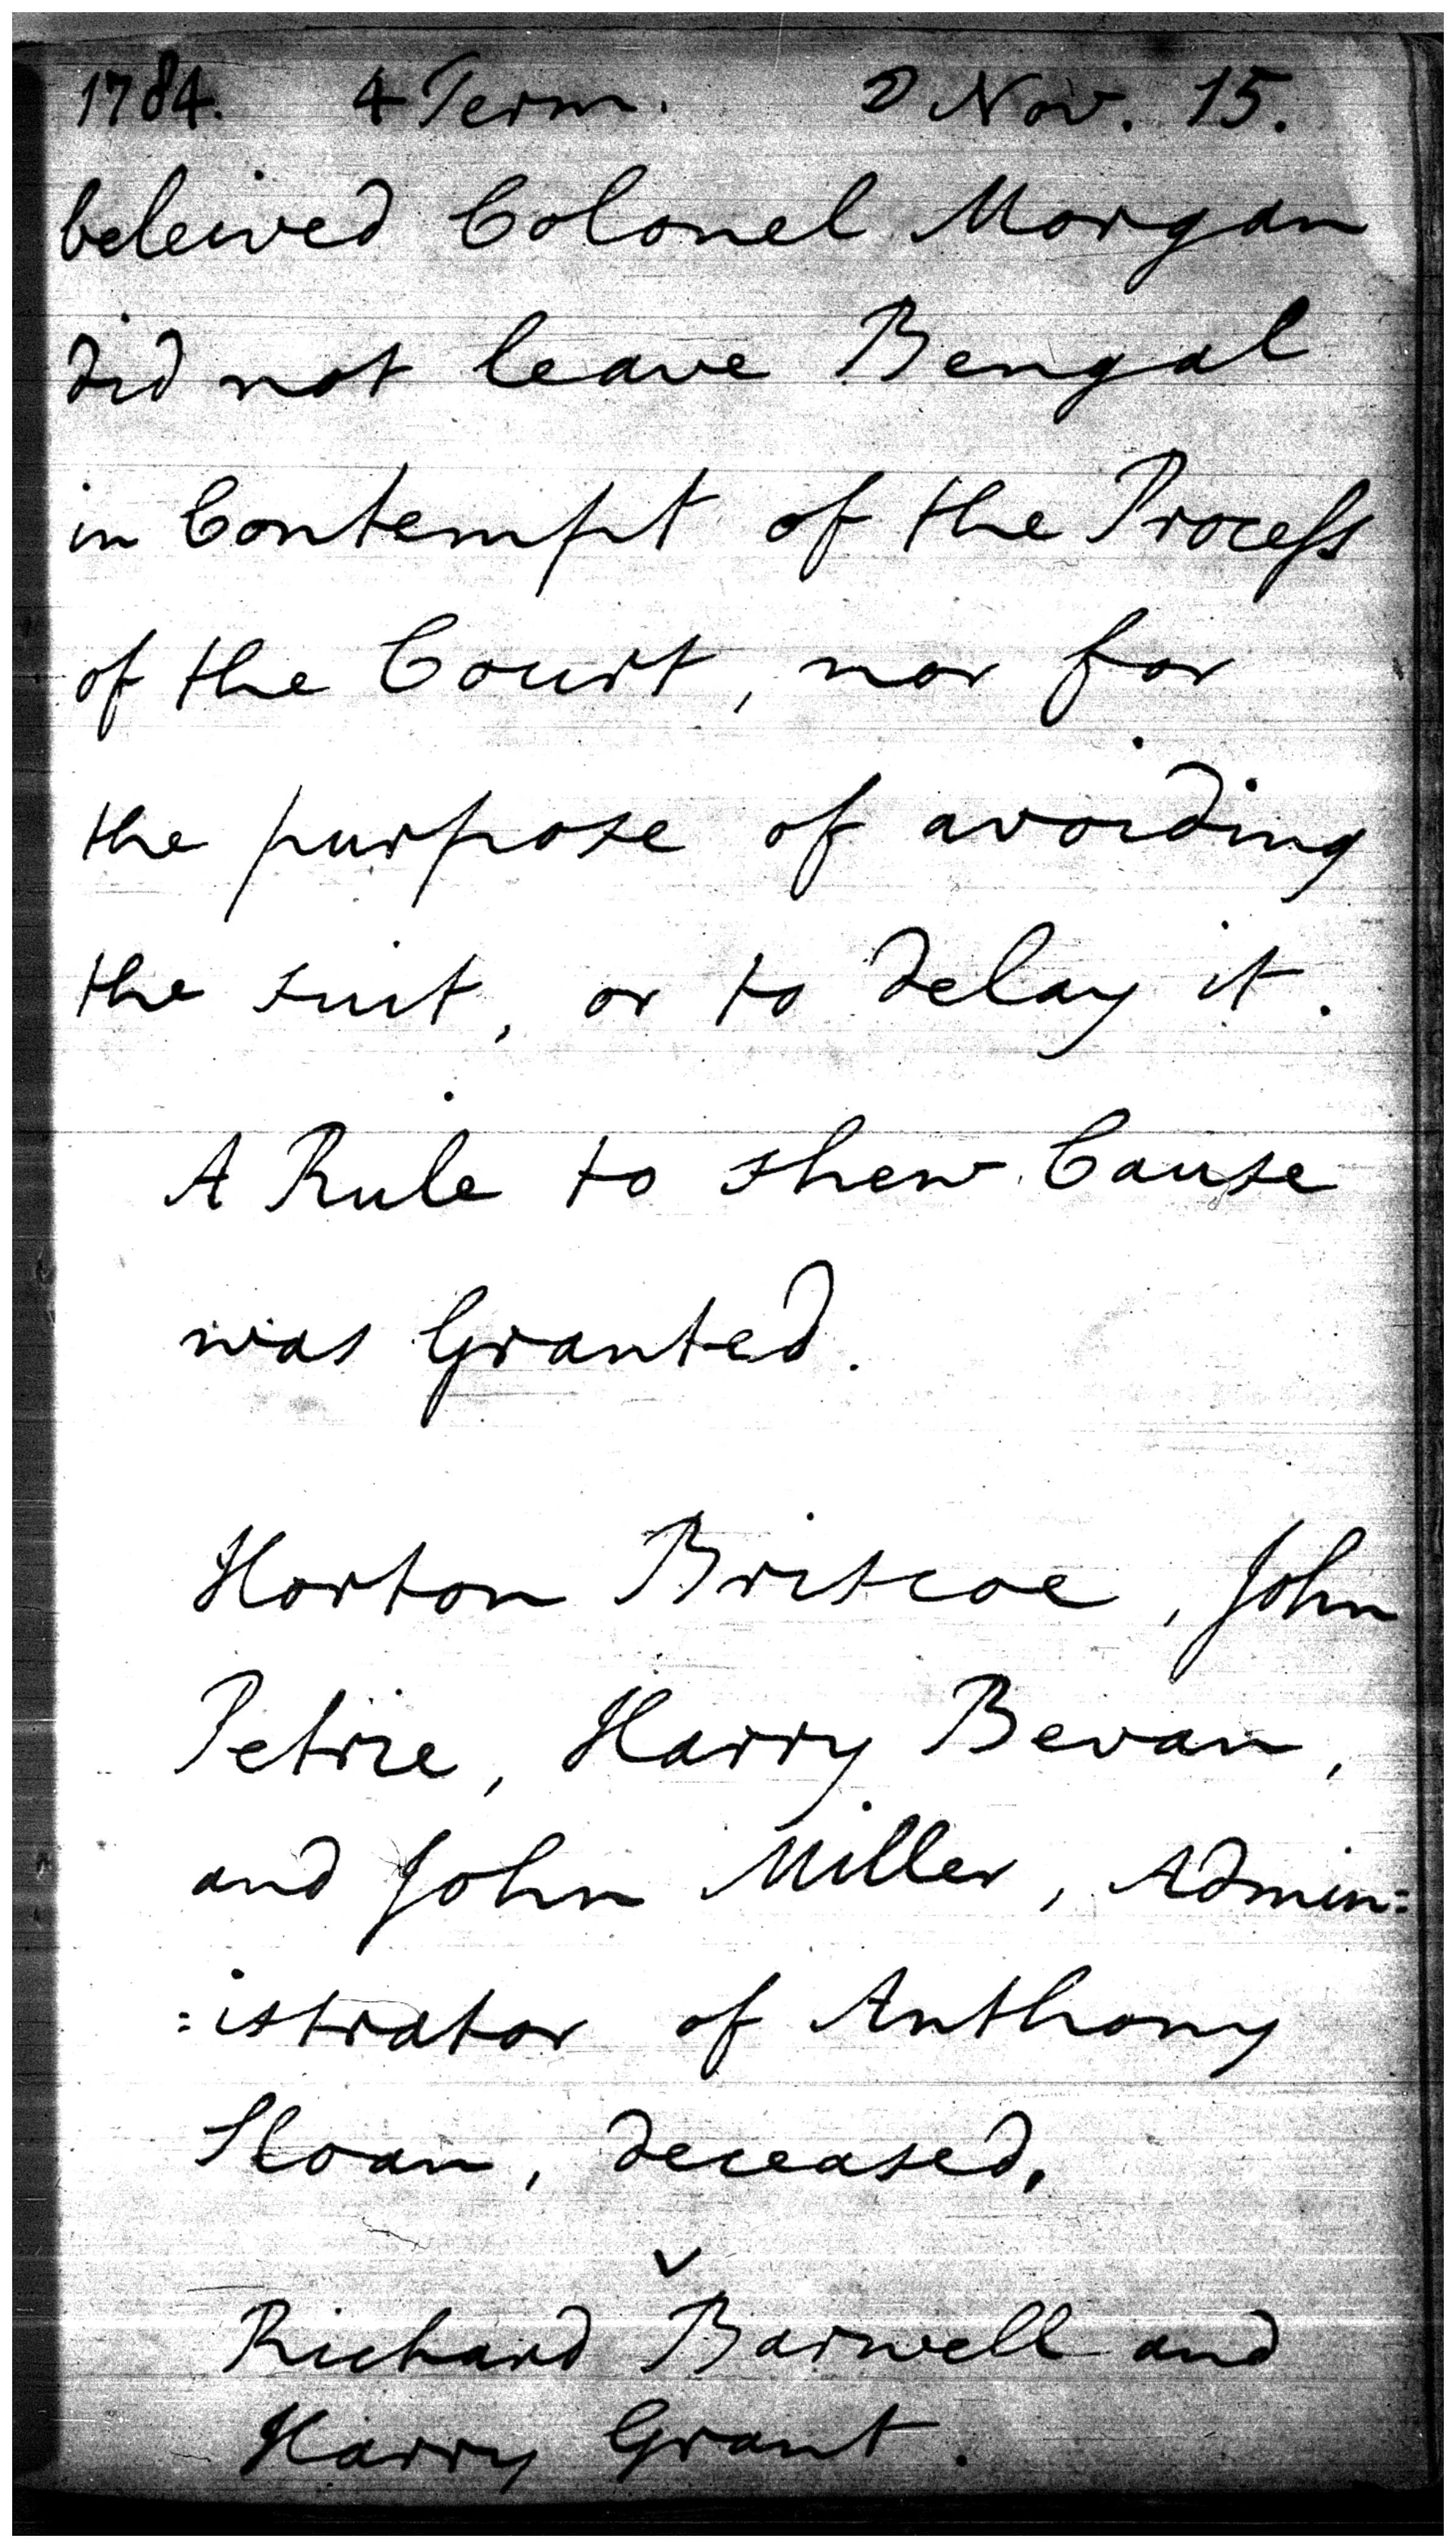 1784. 4 Term. ☽ Nov. 15.
beleived Colonel Morgan
did not leave Bengal
in Contempt of the Process
of the Court, nor for
the purpose of avoiding
the suit, or to delay it.
A Rule to shew Cause
was Granted.
Horton Briscoe, John
Petrie, Harry Bevan,
and John Miller, Admin:
:istrator of Anthony
Sloan, deceased,
v
Richard Barwell and
Harry Grant.